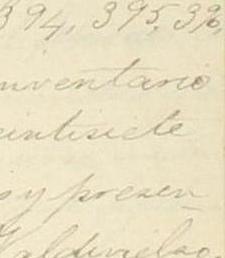 394, 395, 396,
nventario
eintisiete
s y presen-
Valdivielso,